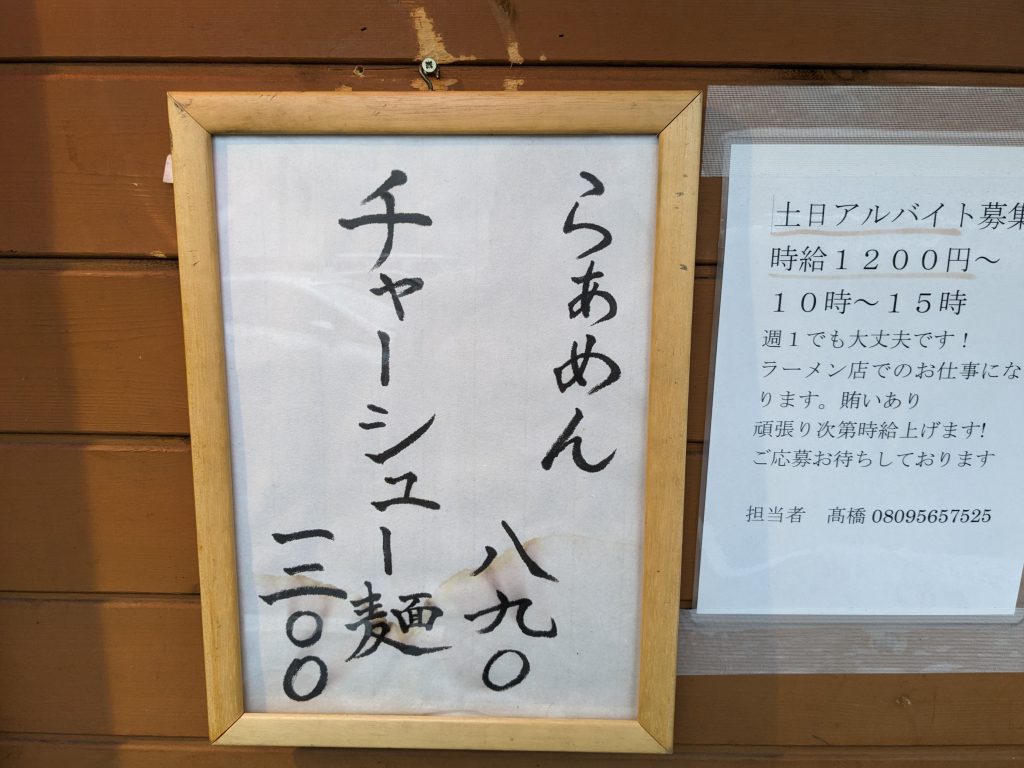 らぁめん
八九〇
チャーシュー麺
一三〇〇
土日アルバイト募集
時給１２００円～
１０時～１５時
週１でも大丈夫です！
ラーメン店でのお仕事にな
ります。賄いあり
頑張り次第時給上げます!
ご応募お待ちしております
担当者　髙橋 08095657525